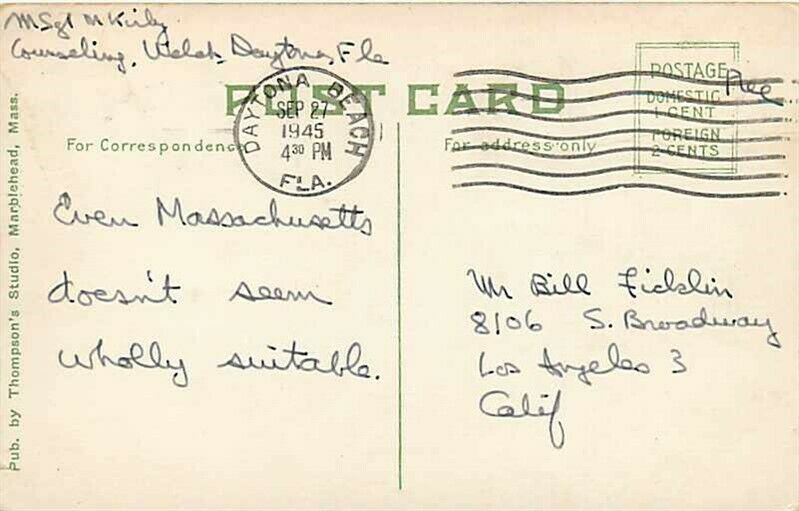 MSgt M Kirby
Counseling, Welch, Daytona, Fla
POST CARD
For Correspondence
For address only
DAYTONA BEACH
SEP 27
1945
4 30 PM
FLA.
POSTAGE
DOMESTIC
1 CENT
FOREIGN
2 CENTS
Free
Even Massachusetts
doesn't seem
wholly suitable.
Mr Bill Ficklin
8106 S. Broadway
Los Angeles 3
Calif
Pub. by Thompson's Studio, Marblehead, Mass.